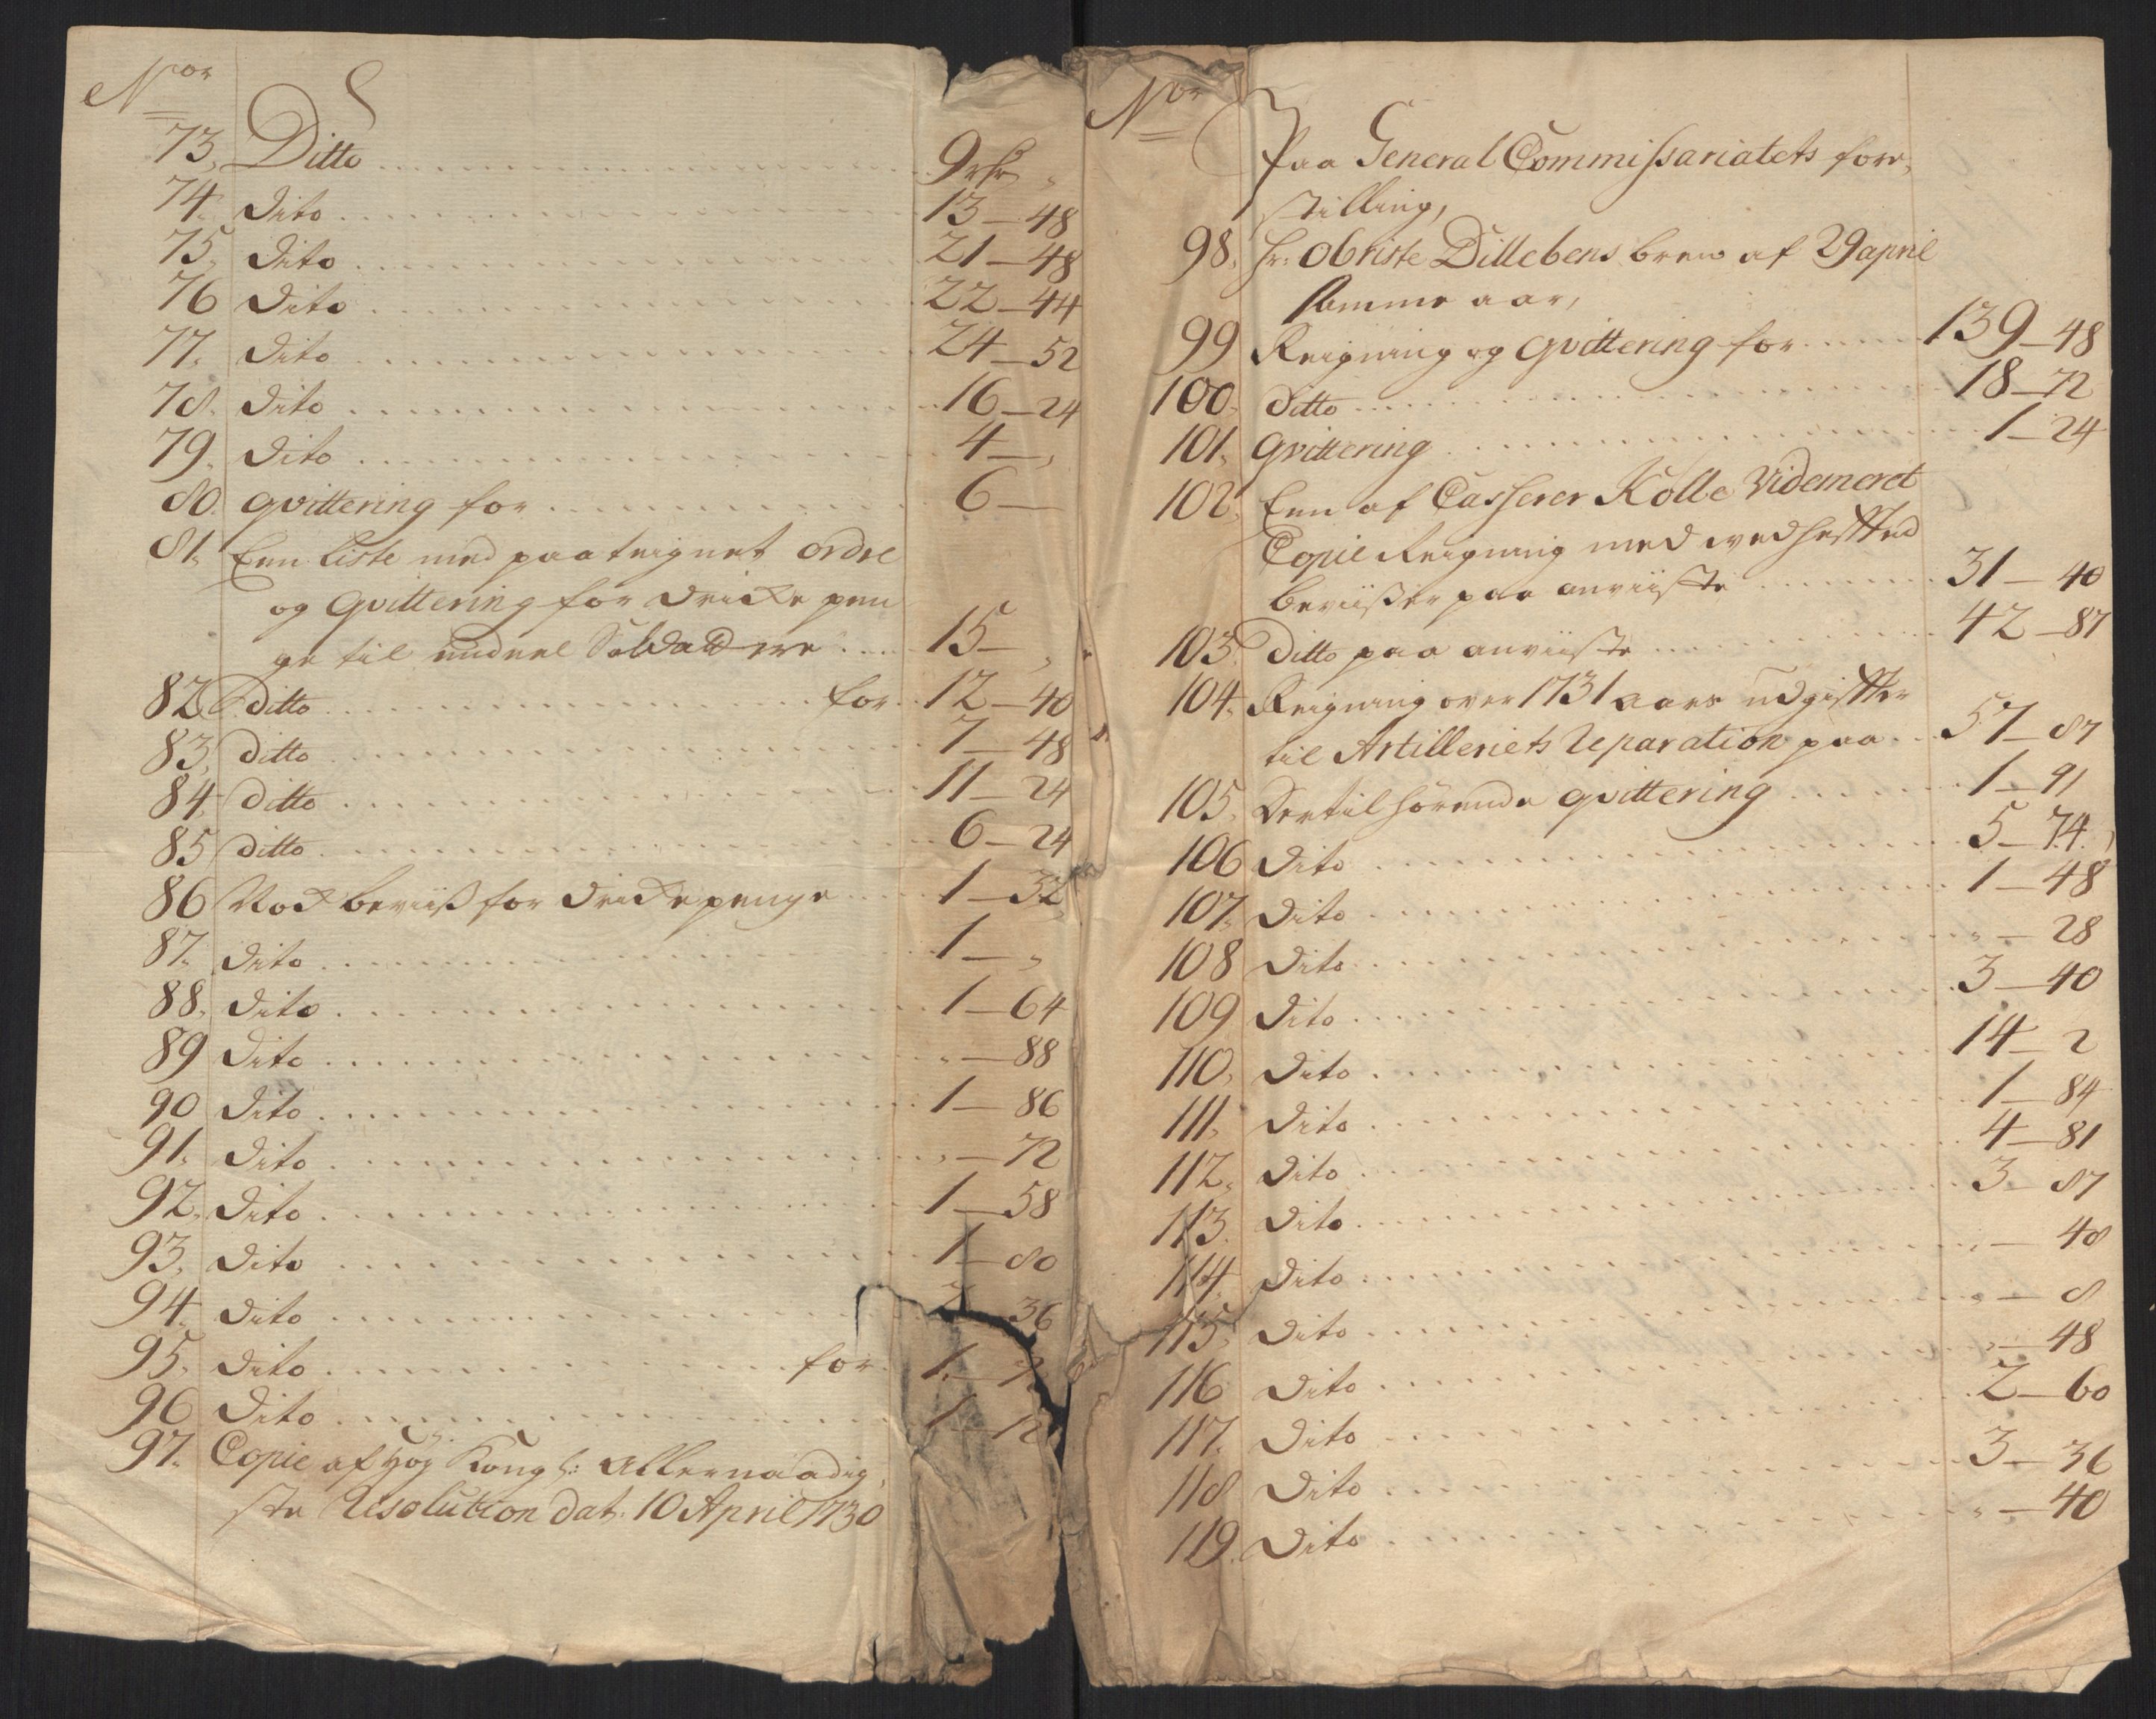 Nor
73, Ditto 9 rdr "
74. Dito 13 — 48
75, Dito 21 — 48
76 Dito 22 — 44
77. Dito 24 — 52
78. Dito 16 — 24
79. Dito 4 — "
80. qvittering for 6 —
81. Een Liste med paateignet ordre
og Qvittering for dricke pen
ge til Soldattere 15 — "
82 Ditto for 12 — 40
83, ditto 7 — 48
84 ditto 11 — 24
85 ditto 6 — 24
86 Nock beviiß for dricke penge 1 — 32
87. Dito 1 — "
88. Dito 1 — 64
89 Dito " — 88
90 Dito 1 — 86
91. Dito " — 72
92. Dito 1 — 58
93, Dito 1 — 80
94. Dito 36
95. Dito for 1
96 Dito 1 — 12
97. Copie af høy Kongl: Allernaadig,
ste Resolution dat: 10 April 1730
Nor
Paa General Commissariatets fore,
stilling,
98. hr: Obriste Dillebens brew af 29 april
samme aar,
99 Reigning og qvittering for 139 — 48
100. ditto 18 — 72
101. qvittering 1 — 24
102. Een af Casserer Kolle Videmeret
Copie Reigning med vedheffted
beviißer paa anviiste 31 — 40
103. ditto paa anviiste 42 — 87
104. Reigning over 1731 aars udgiffter
til Artilleriets Reparation paa 57 — 87
105, dertilhørende qvittering 1 — 91
106 Dito 5 — 74
107. Dito 1 — 48
108 Dito " — 28
109 Dito 3 — 40
110, Dito 14 — 2
111, Dito 1 — 84
112, Dito 4 — 81
113. Dito 3 — 87
114. Dito " — 48
115, Dito " — 8
116 Dito " — 48
117. Dito 2 — 60
118 Dito 3 — 36
119. Dito " — 40